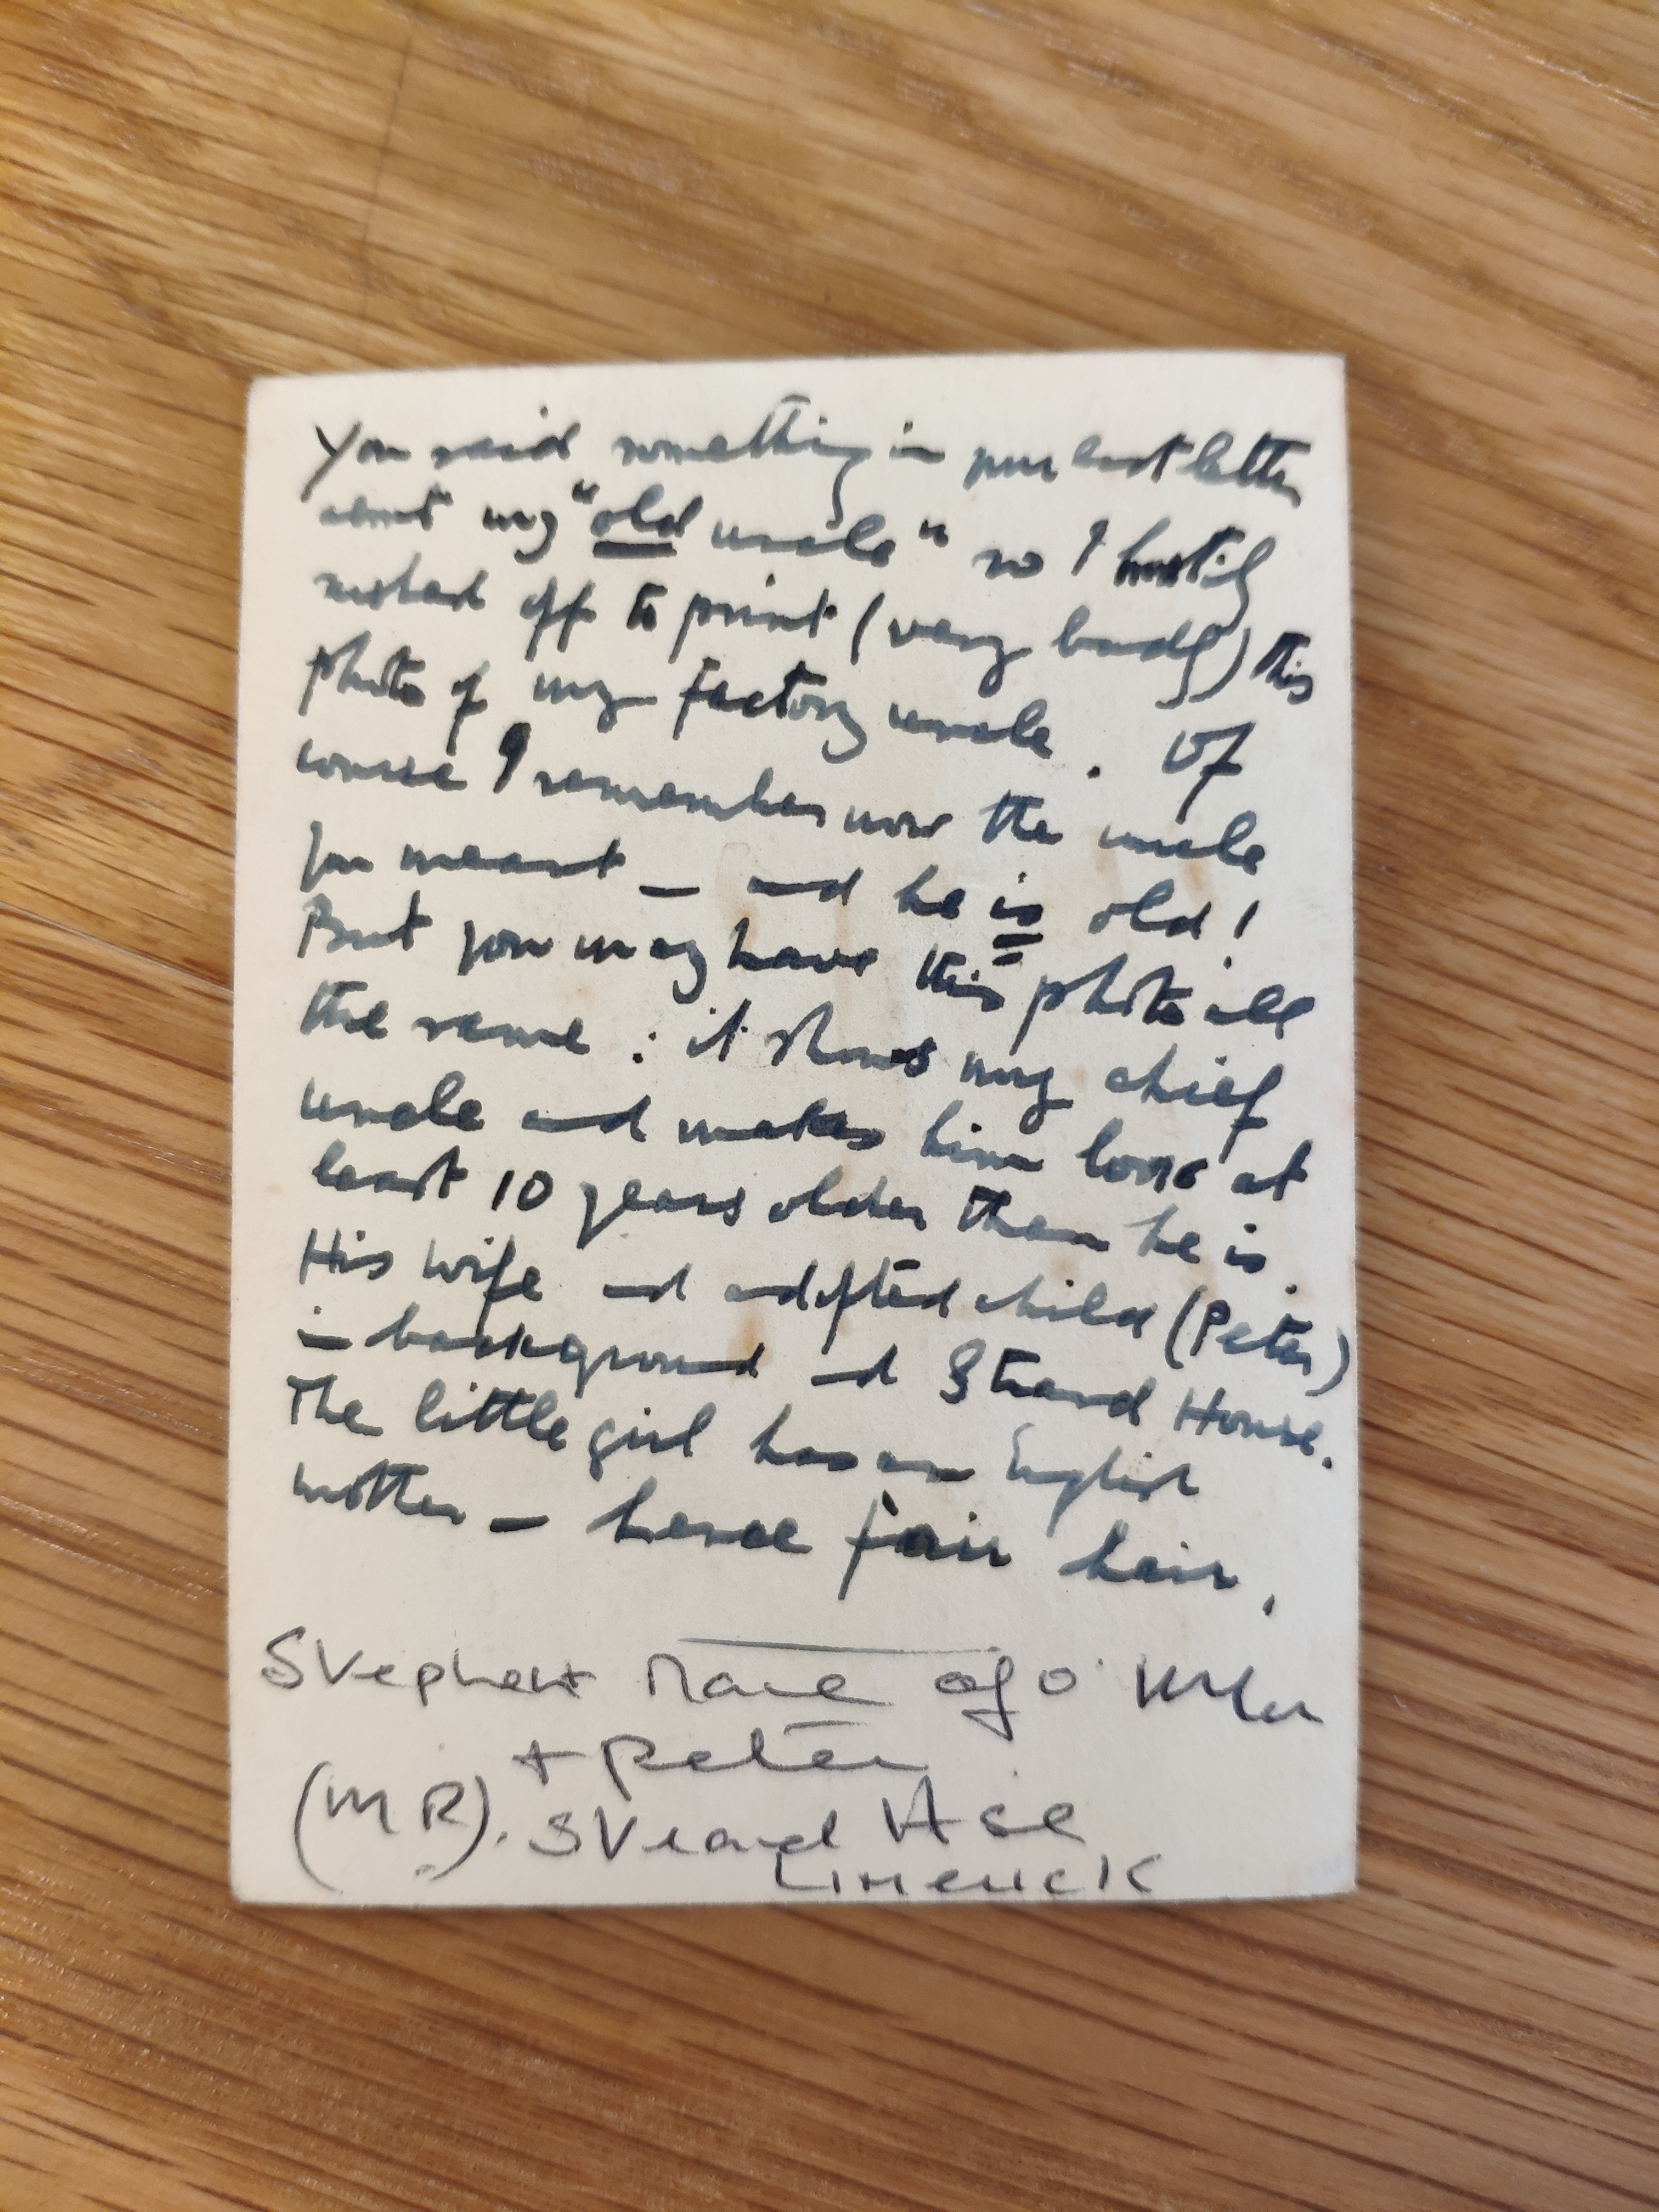 You said something in your last letter
about my "old uncle" so I hastily
rushed off to print (very badly) this
photo of my factory uncle. Of
course I remember now the uncle
you meant — and he is old!
But you may have this photo all
the same : it shows my chief
uncle and makes him look at
least 10 years older than he is.
His wife and adopted child (Peter)
in background and Strand House.
The little girl has an English
mother — hence fair hair.
Stephen
+ Peter
(MR). Strand Hse
Limerick